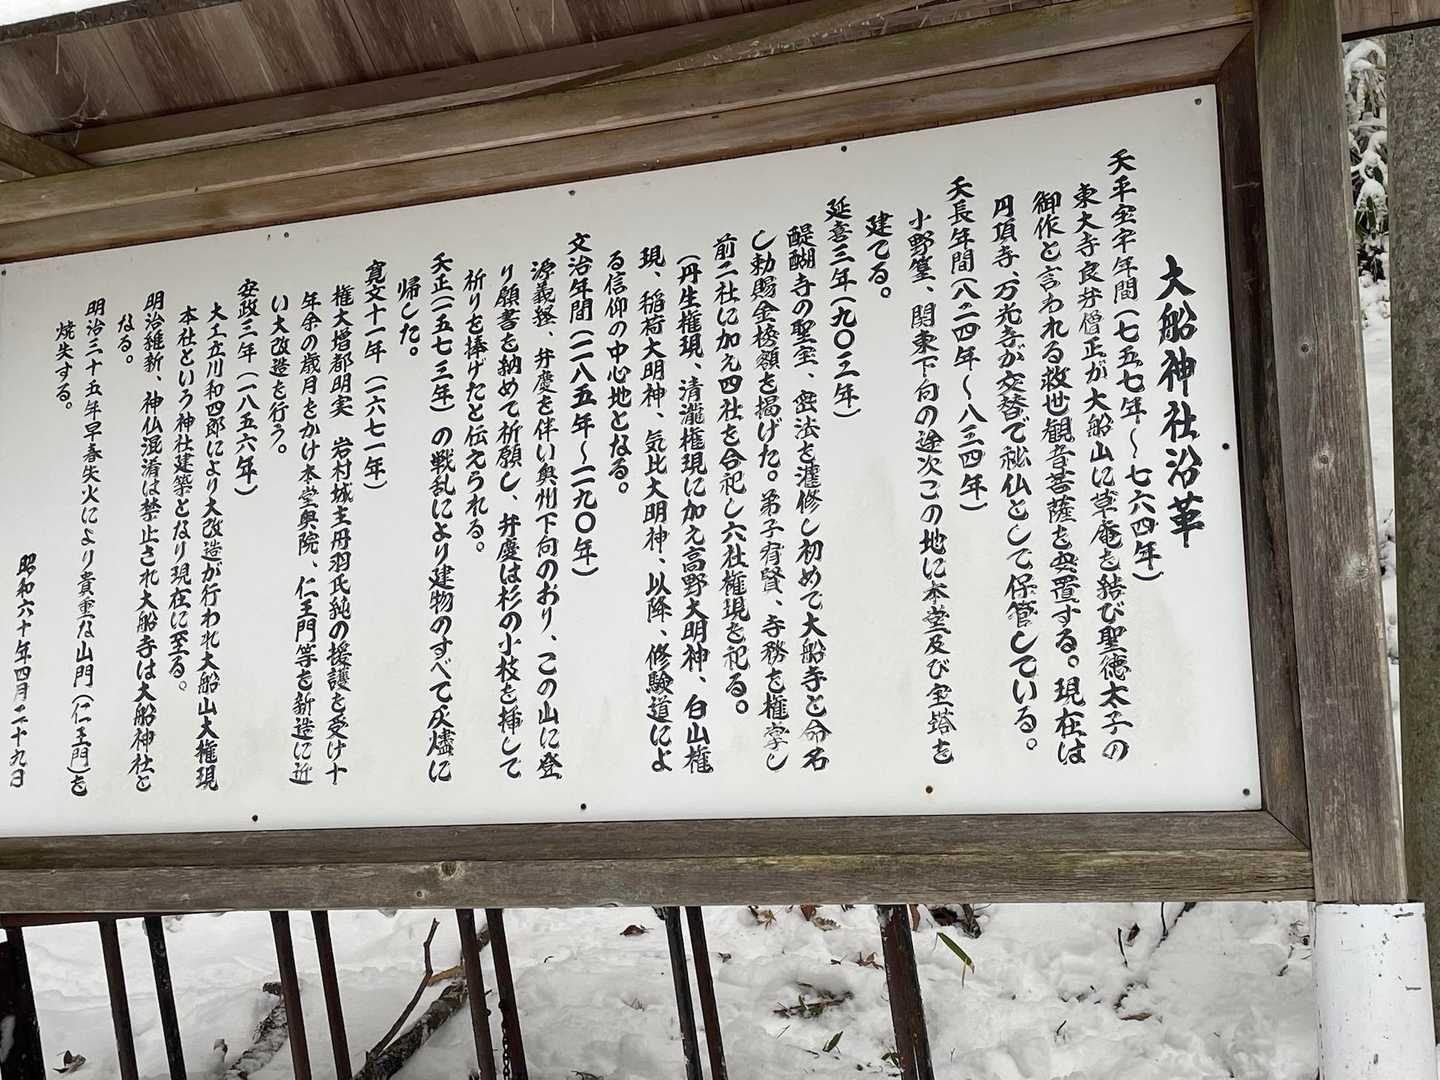 大船神社沿革
天平宝字年間(七五七年〜七六四年)
東大寺良弁僧正が大船山に草庵を結び聖徳太子の
御作と言われる救世観音菩薩を安置する。現在は
円頂寺、万光寺が交替で秘仏として保管している。
天長年間(八二四年〜八三四年)
小野篁、関東下向の途次この地に本堂及び宝塔を
建てる。
延喜三年(九〇三年)
醍醐寺の聖宝、密法を灌修し初めて大船寺と命名
し勅賜金榜額を掲げた。弟子有賢、寺務を権掌し
前二社に加え四社を合祀し六社権現を祀る。
(丹生権現、清瀧権現に加え高野大明神、白山権
現、稲荷大明神、気比大明神、以降、修験道によ
る信仰の中心地となる。
文治年間(一一八五年〜一一九〇年)
源義経、弁慶を伴い奥州下向のおり、この山に登
り願書を納めて祈願し、弁慶は杉の小枝を挿して
祈りを捧げたと伝えられる。
天正(一五七三年)の戦乱により建物のすべて灰燼に
帰した。
寛文十一年(一六七一年)
権大増都明実　岩村城主丹羽氏純の援護を受け十
年余の歳月をかけ本堂奥院、仁王門等を新造に近
い大改造を行う。
安政三年(一八五六年)
大工立川和四郎により大改造が行われ大船山大権現
本社といろ神社建築となり現在に至る。
明治維新、神仏混淆は禁止され大船寺は大船神社と
なる。
明治三十五年早春失火により貴重な山門(仁王門)を
焼失する。
昭和六十年四月二十九日